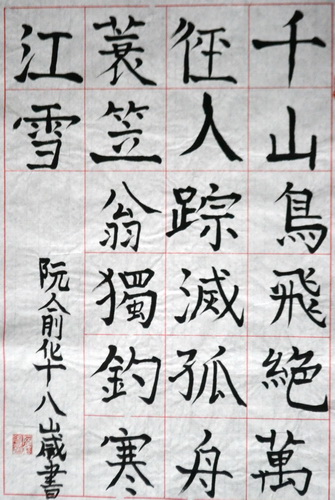 千山鳥飛絕萬
徑人踪滅孤舟
蓑笠翁獨釣寒
江雪
阮俞华十八岁書